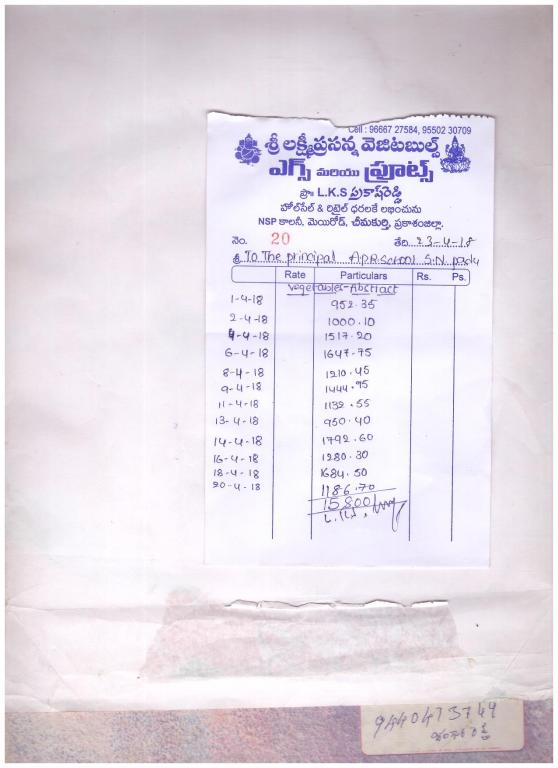 Cell : 96667 27584, 95502 30709
శ్రీ లక్ష్మీప్రసన్న వెజిటబుల్స్
ఎగ్స్ మరియు ఫ్రూట్స్
ప్రొః L.K.S ప్రకాష్‌రెడ్డి
హోల్‌సేల్ & రిటైల్ ధరలకే లభించును
NSP కాలనీ, మెయిరోడ్, చీమకుర్తి, ప్రకాశంజిల్లా.
నెం. 20 తేది. 23-4-18
శ్రీ To The principal A.P.R.School S.N. padu
Rate Particulars Rs. Ps.
Vegetables-Abstract
1-4-18 952.35
2-4-18 1000.10
4-4-18 1517.20
6-4-18 1647-75
8-4-18 1210.45
9-4-18 1444.95
11-4-18 1132.55
13-4-18 950.40
14-4-18 1792.60
16-4-18 1280.30
18-4-18 1684.50
20-4-18 1186.70
15800/
9440473749